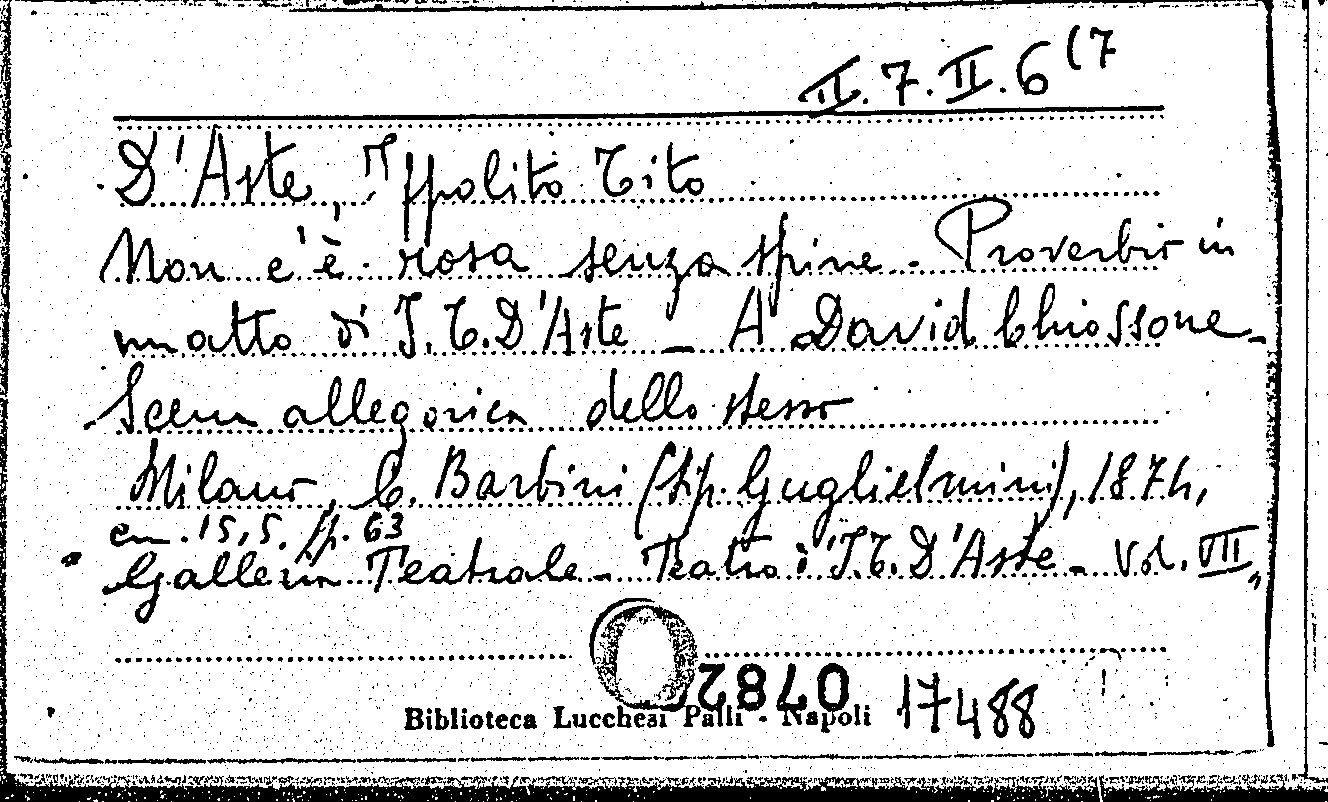 II.7.II.6(7
D'Aste, Ippolito Tito
Non c'è rosa senza spine - Proverbio in
un atto di I. T. D'Aste - A David Chiossone -
Scena allegorica dello stesso
Milano, C. Barbini (tip. Guglielmini), 1874,
cm. 15,5. pp. 63
"Galleria Teatrale - Teatro d'I. T. D'Aste - Vol. VII"
0782
Biblioteca Lucchesi Palli - Napoli 17488